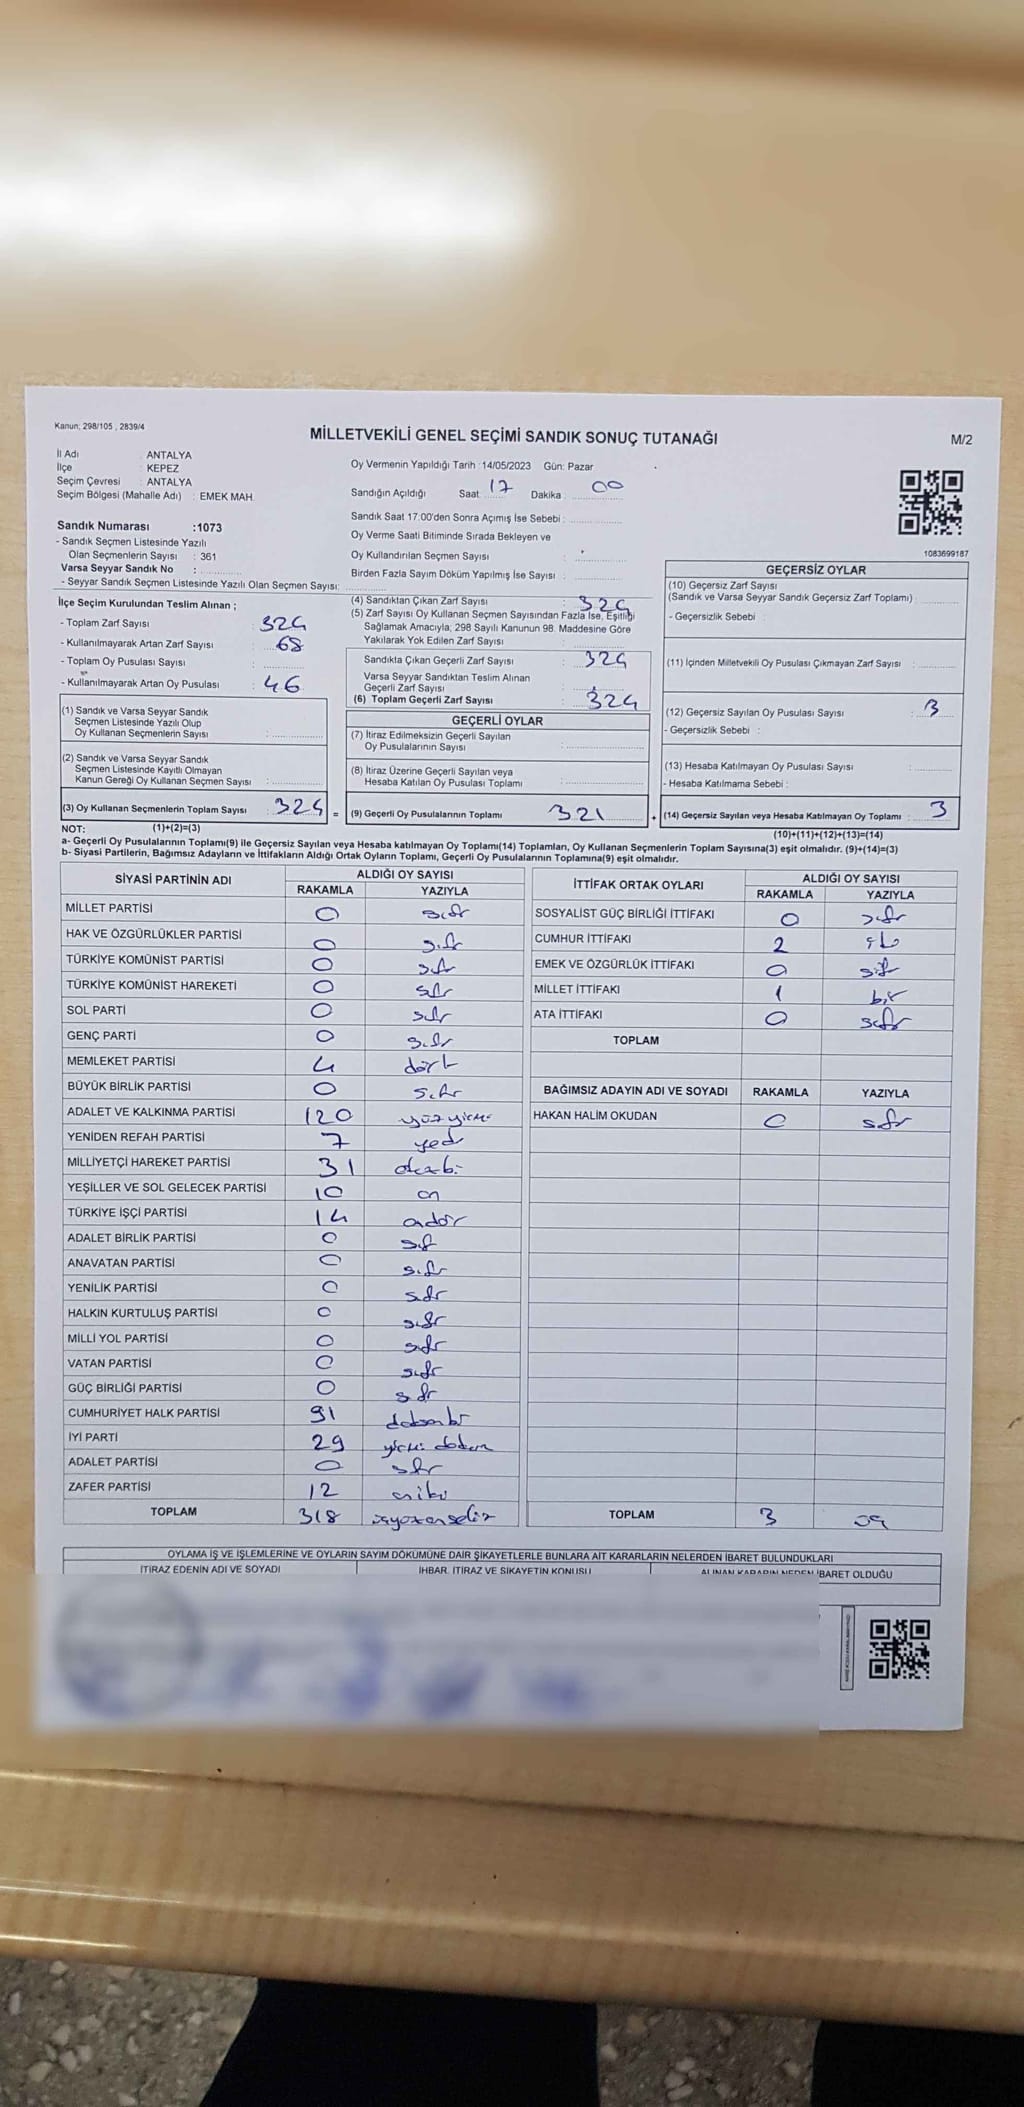 Kanun; 298/105 , 2839/4
MİLLETVEKİLİ GENEL SEÇİMİ SANDIK SONUÇ TUTANAĞI
M/2
İl Adı : ANTALYA
İlçe : KEPEZ
Seçim Çevresi : ANTALYA
Seçim Bölgesi (Mahalle Adı) : EMEK MAH.
Oy Vermenin Yapıldığı Tarih :14/05/2023 Gün: Pazar
Sandığın Açıldığı Saat 17 Dakika : 00
Sandık Saat 17:00'den Sonra Açımış İse Sebebi :
Oy Verme Saati Bitiminde Sırada Bekleyen ve
Oy Kullandırılan Seçmen Sayısı :
Birden Fazla Sayım Döküm Yapılmış İse Sayısı :
Sandık Numarası :1073
- Sandık Seçmen Listesinde Yazılı
Olan Seçmenlerin Sayısı : 361
Varsa Seyyar Sandık No :
- Seyyar Sandık Seçmen Listesinde Yazılı Olan Seçmen Sayısı:
1083699187
İlçe Seçim Kurulundan Teslim Alınan ;
- Toplam Zarf Sayısı : 324
- Kullanılmayarak Artan Zarf Sayısı : 68
- Toplam Oy Pusulası Sayısı :
- Kullanılmayarak Artan Oy Pusulası : 46
(1) Sandık ve Varsa Seyyar Sandık
Seçmen Listesinde Yazılı Olup
Oy Kullanan Seçmenlerin Sayısı :
(2) Sandık ve Varsa Seyyar Sandık
Seçmen Listesinde Kayıtlı Olmayan
Kanun Gereği Oy Kullanan Seçmen Sayısı :
(3) Oy Kullanan Seçmenlerin Toplam Sayısı : 324 =
(4) Sandıktan Çıkan Zarf Sayısı : 324
(5) Zarf Sayısı Oy Kullanan Seçmen Sayısından Fazla İse, Eşitliği
Sağlamak Amacıyla; 298 Sayılı Kanunun 98. Maddesine Göre
Yakılarak Yok Edilen Zarf Sayısı :
Sandıkta Çıkan Geçerli Zarf Sayısı : 324
Varsa Seyyar Sandıktan Teslim Alınan
Geçerli Zarf Sayısı :
(6) Toplam Geçerli Zarf Sayısı : 324
GEÇERLİ OYLAR
(7) İtiraz Edilmeksizin Geçerli Sayılan
Oy Pusulalarının Sayısı :
(8) İtiraz Üzerine Geçerli Sayılan veya
Hesaba Katılan Oy Pusulası Toplamı :
(9) Geçerli Oy Pusulalarının Toplamı : 321 +
GEÇERSİZ OYLAR
(10) Geçersiz Zarf Sayısı
(Sandık ve Varsa Seyyar Sandık Geçersiz Zarf Toplamı) :
- Geçersizlik Sebebi :
(11) İçinden Milletvekili Oy Pusulası Çıkmayan Zarf Sayısı :
(12) Geçersiz Sayılan Oy Pusulası Sayısı : 3
- Geçersizlik Sebebi :
(13) Hesaba Katılmayan Oy Pusulası Sayısı :
- Hesaba Katılmama Sebebi :
(14) Geçersiz Sayılan veya Hesaba Katılmayan Oy Toplamı : 3
NOT: (1)+(2)=(3)
(10)+(11)+(12)+(13)=(14)
a- Geçerli Oy Pusulalarının Toplamı(9) ile Geçersiz Sayılan veya Hesaba katılmayan Oy Toplamı(14) Toplamları, Oy Kullanan Seçmenlerin Toplam Sayısına(3) eşit olmalıdır. (9)+(14)=(3)
b- Siyasi Partilerin, Bağımsız Adayların ve İttifakların Aldığı Ortak Oyların Toplamı, Geçerli Oy Pusulalarının Toplamına(9) eşit olmalıdır.
SİYASİ PARTİNİN ADI
ALDIĞI OY SAYISI
RAKAMLA YAZIYLA
MİLLET PARTİSİ 0 sıfır
HAK VE ÖZGÜRLÜKLER PARTİSİ 0 sıfır
TÜRKİYE KOMÜNİST PARTİSİ 0 sıfır
TÜRKİYE KOMÜNİST HAREKETİ 0 sıfır
SOL PARTİ 0 sıfır
GENÇ PARTİ 0 sıfır
MEMLEKET PARTİSİ 4 dört
BÜYÜK BİRLİK PARTİSİ 0 sıfır
ADALET VE KALKINMA PARTİSİ 120 yüzyirmi
YENİDEN REFAH PARTİSİ 7 yedi
MİLLİYETÇİ HAREKET PARTİSİ 31 otuzbir
YEŞİLLER VE SOL GELECEK PARTİSİ 10 on
TÜRKİYE İŞÇİ PARTİSİ 14 ondör
ADALET BİRLİK PARTİSİ 0 sıf
ANAVATAN PARTİSİ 0 sıfır
YENİLİK PARTİSİ 0 sıfır
HALKIN KURTULUŞ PARTİSİ 0 sıfır
MİLLİ YOL PARTİSİ 0 sıfır
VATAN PARTİSİ 0 sıfır
GÜÇ BİRLİĞİ PARTİSİ 0 sıfır
CUMHURİYET HALK PARTİSİ 91 doksanbir
İYİ PARTİ 29 yirmi dokuz
ADALET PARTİSİ 0 sıfır
ZAFER PARTİSİ 12 oniki
TOPLAM 318 üçyüzonsekiz
İTTİFAK ORTAK OYLARI
ALDIĞI OY SAYISI
RAKAMLA YAZIYLA
SOSYALİST GÜÇ BİRLİĞİ İTTİFAKI 0 sıfır
CUMHUR İTTİFAKI 2 iki
EMEK VE ÖZGÜRLÜK İTTİFAKI 0 sıfır
MİLLET İTTİFAKI 1 bir
ATA İTTİFAKI 0 sıfır
TOPLAM
BAĞIMSIZ ADAYIN ADI VE SOYADI RAKAMLA YAZIYLA
HAKAN HALİM OKUDAN 0 sıfır
TOPLAM 3 üç
OYLAMA İŞ VE İŞLEMLERİNE VE OYLARIN SAYIM DÖKÜMÜNE DAİR ŞİKAYETLERLE BUNLARA AİT KARARLARIN NELERDEN İBARET BULUNDUKLARI
İTİRAZ EDENİN ADI VE SOYADI İHBAR, İTİRAZ VE ŞİKAYETİN KONUSU ALINAN KARARIN NEDEN İBARET OLDUĞU